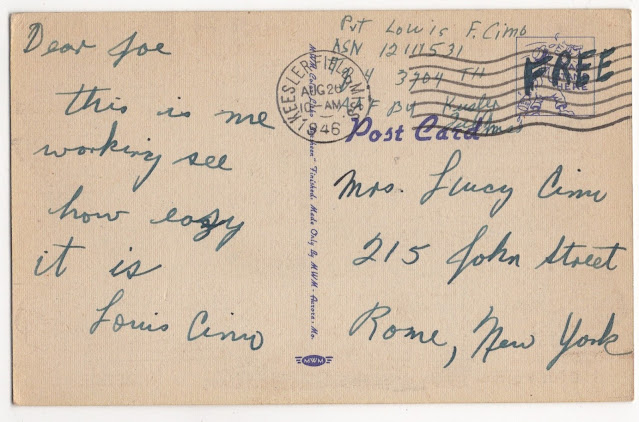 Dear Joe
this is me
working see
how easy
it is
Louis Cimo
Pvt Louis F. Cimo
ASN 12111531
3704 TH
AAF BU Keesler
KEESLER FIELD, MISS.
AUG 20
10 AM
1946
FREE
HERE
Post Card
Mrs. Lucy Cimo
215 John Street
Rome, New York
Finished. Made Only By MWM - Aurora, Mo.
MWM